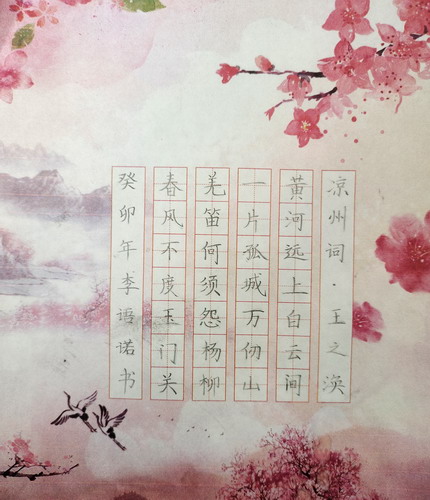 凉州词·王之涣
黄河远上白云间
一片孤城万仞山
羌笛何须怨杨柳
春风不度玉门关
癸卯年李语诺书